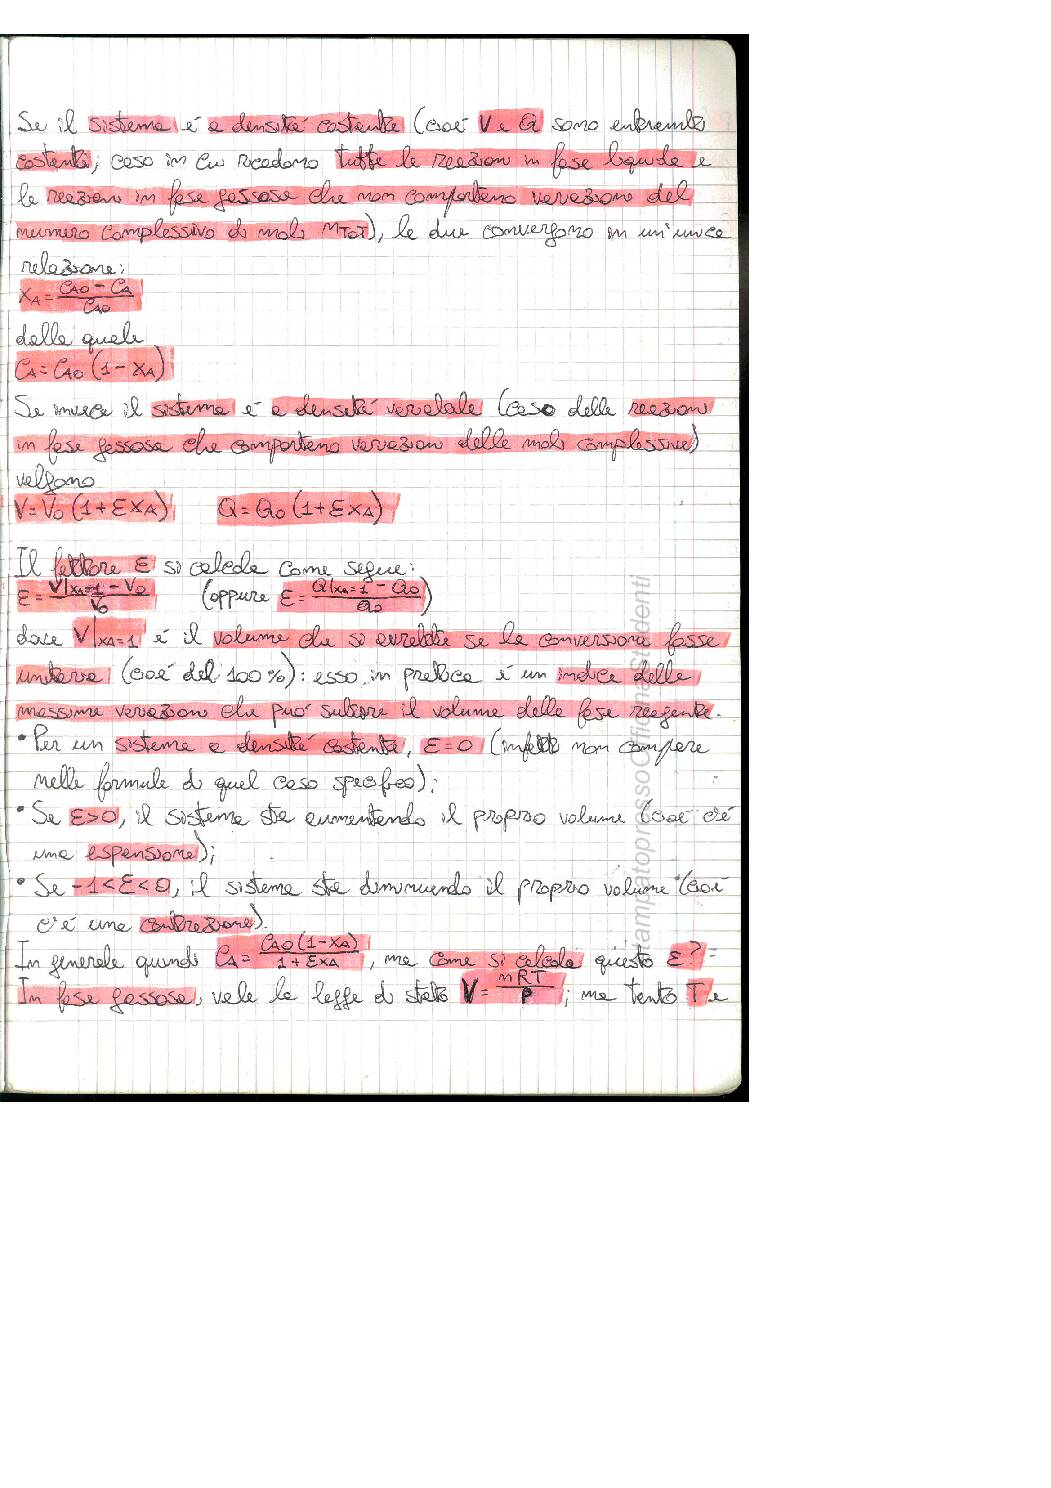 Se il sistema è a densità costante (cioè V e Q sono entrambi
costanti; caso in cui ricadono tutte le reazioni in fase liquida e
le reazioni in fase gassosa che non comportano variazioni del
numero complessivo di moli nTOT), le due convergono in un'unica
relazione:
XA = (CA0 - CA)/CA0
dalla quale
CA = CA0 (1 - XA)
Se invece il sistema è a densità variabile (caso delle reazioni
in fase gassosa che comportano variazioni delle moli complessive)
valgono
V = V0 (1 + εXA) Q = Q0 (1 + εXA)
Il fattore ε si calcola come segue:
ε = (V|XA=1 - V0)/V0 (oppure ε = (Q|XA=1 - Q0)/Q0)
dove V|XA=1 è il volume che si avrebbe se la conversione fosse
unitaria (cioè del 100%): esso in pratica è un indice della
massima variazione che può subire il volume della fase reagente.
• Per un sistema a densità costante, ε=0 (infatti non compare
nelle formule di quel caso specifico);
• Se ε>0, il sistema sta aumentando il proprio volume (cioè c'è
una espansione);
• Se -1<ε<0, il sistema sta diminuendo il proprio volume (cioè
c'è una contrazione).
In generale quindi CA = CA0(1-XA)/(1+εXA), ma come si calcola questo ε?
In fase gassosa, vale la legge di stato V = nRT/P; ma tanto T e
stampatopressoOfficinaStudenti